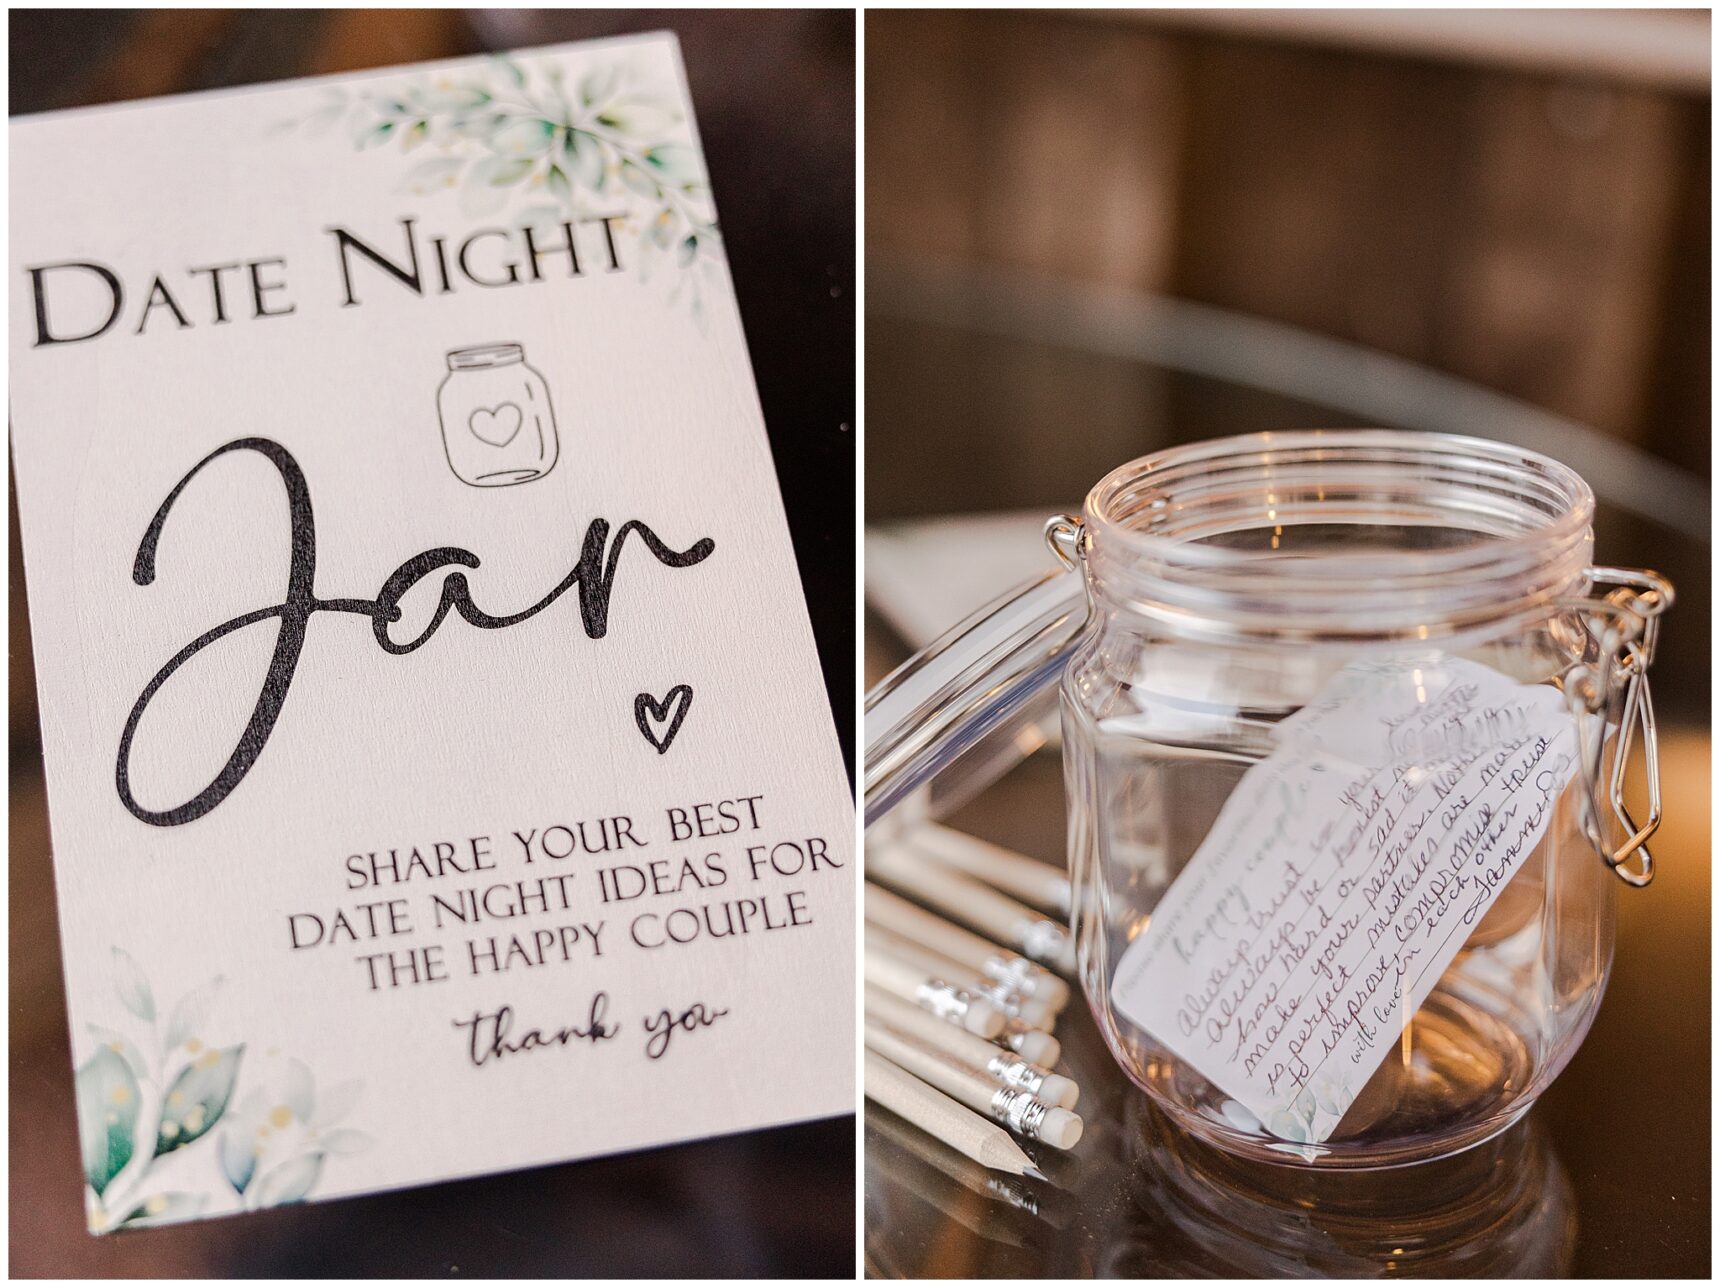 DATE NIGHT
Jar
SHARE YOUR BEST
DATE NIGHT IDEAS FOR
THE HAPPY COUPLE
thank you
happy couple
Always trust in your
always be honest no
how hard or sad it
make your partner. Nothing
is perfect mistakes are made
to improve, compromise trust
with love in each other